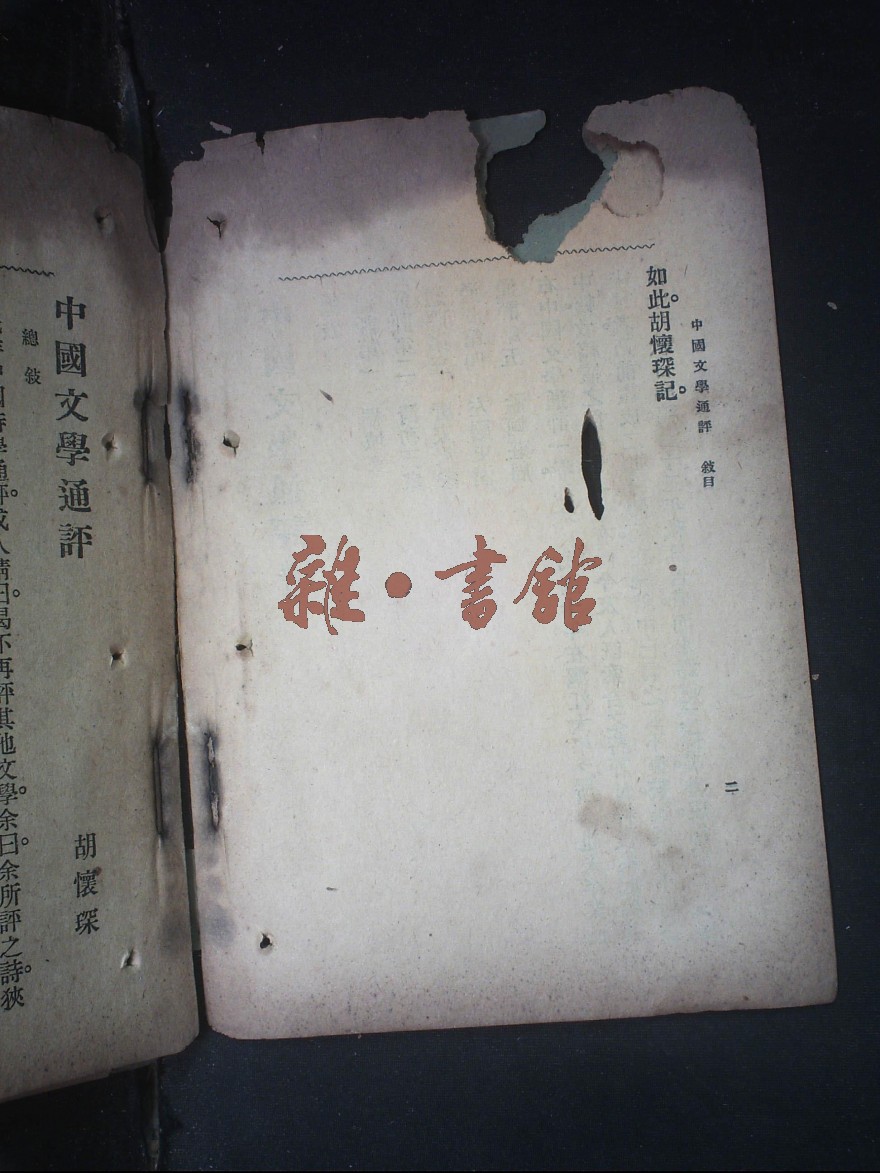 中國文學通評　敘目
二
如此。胡懷琛記。
雜·書館
中國文學通評
胡懷琛
總敘
中國詩學通評。或人請曰。曷不再評其他文學。余曰。余所評之詩。狹